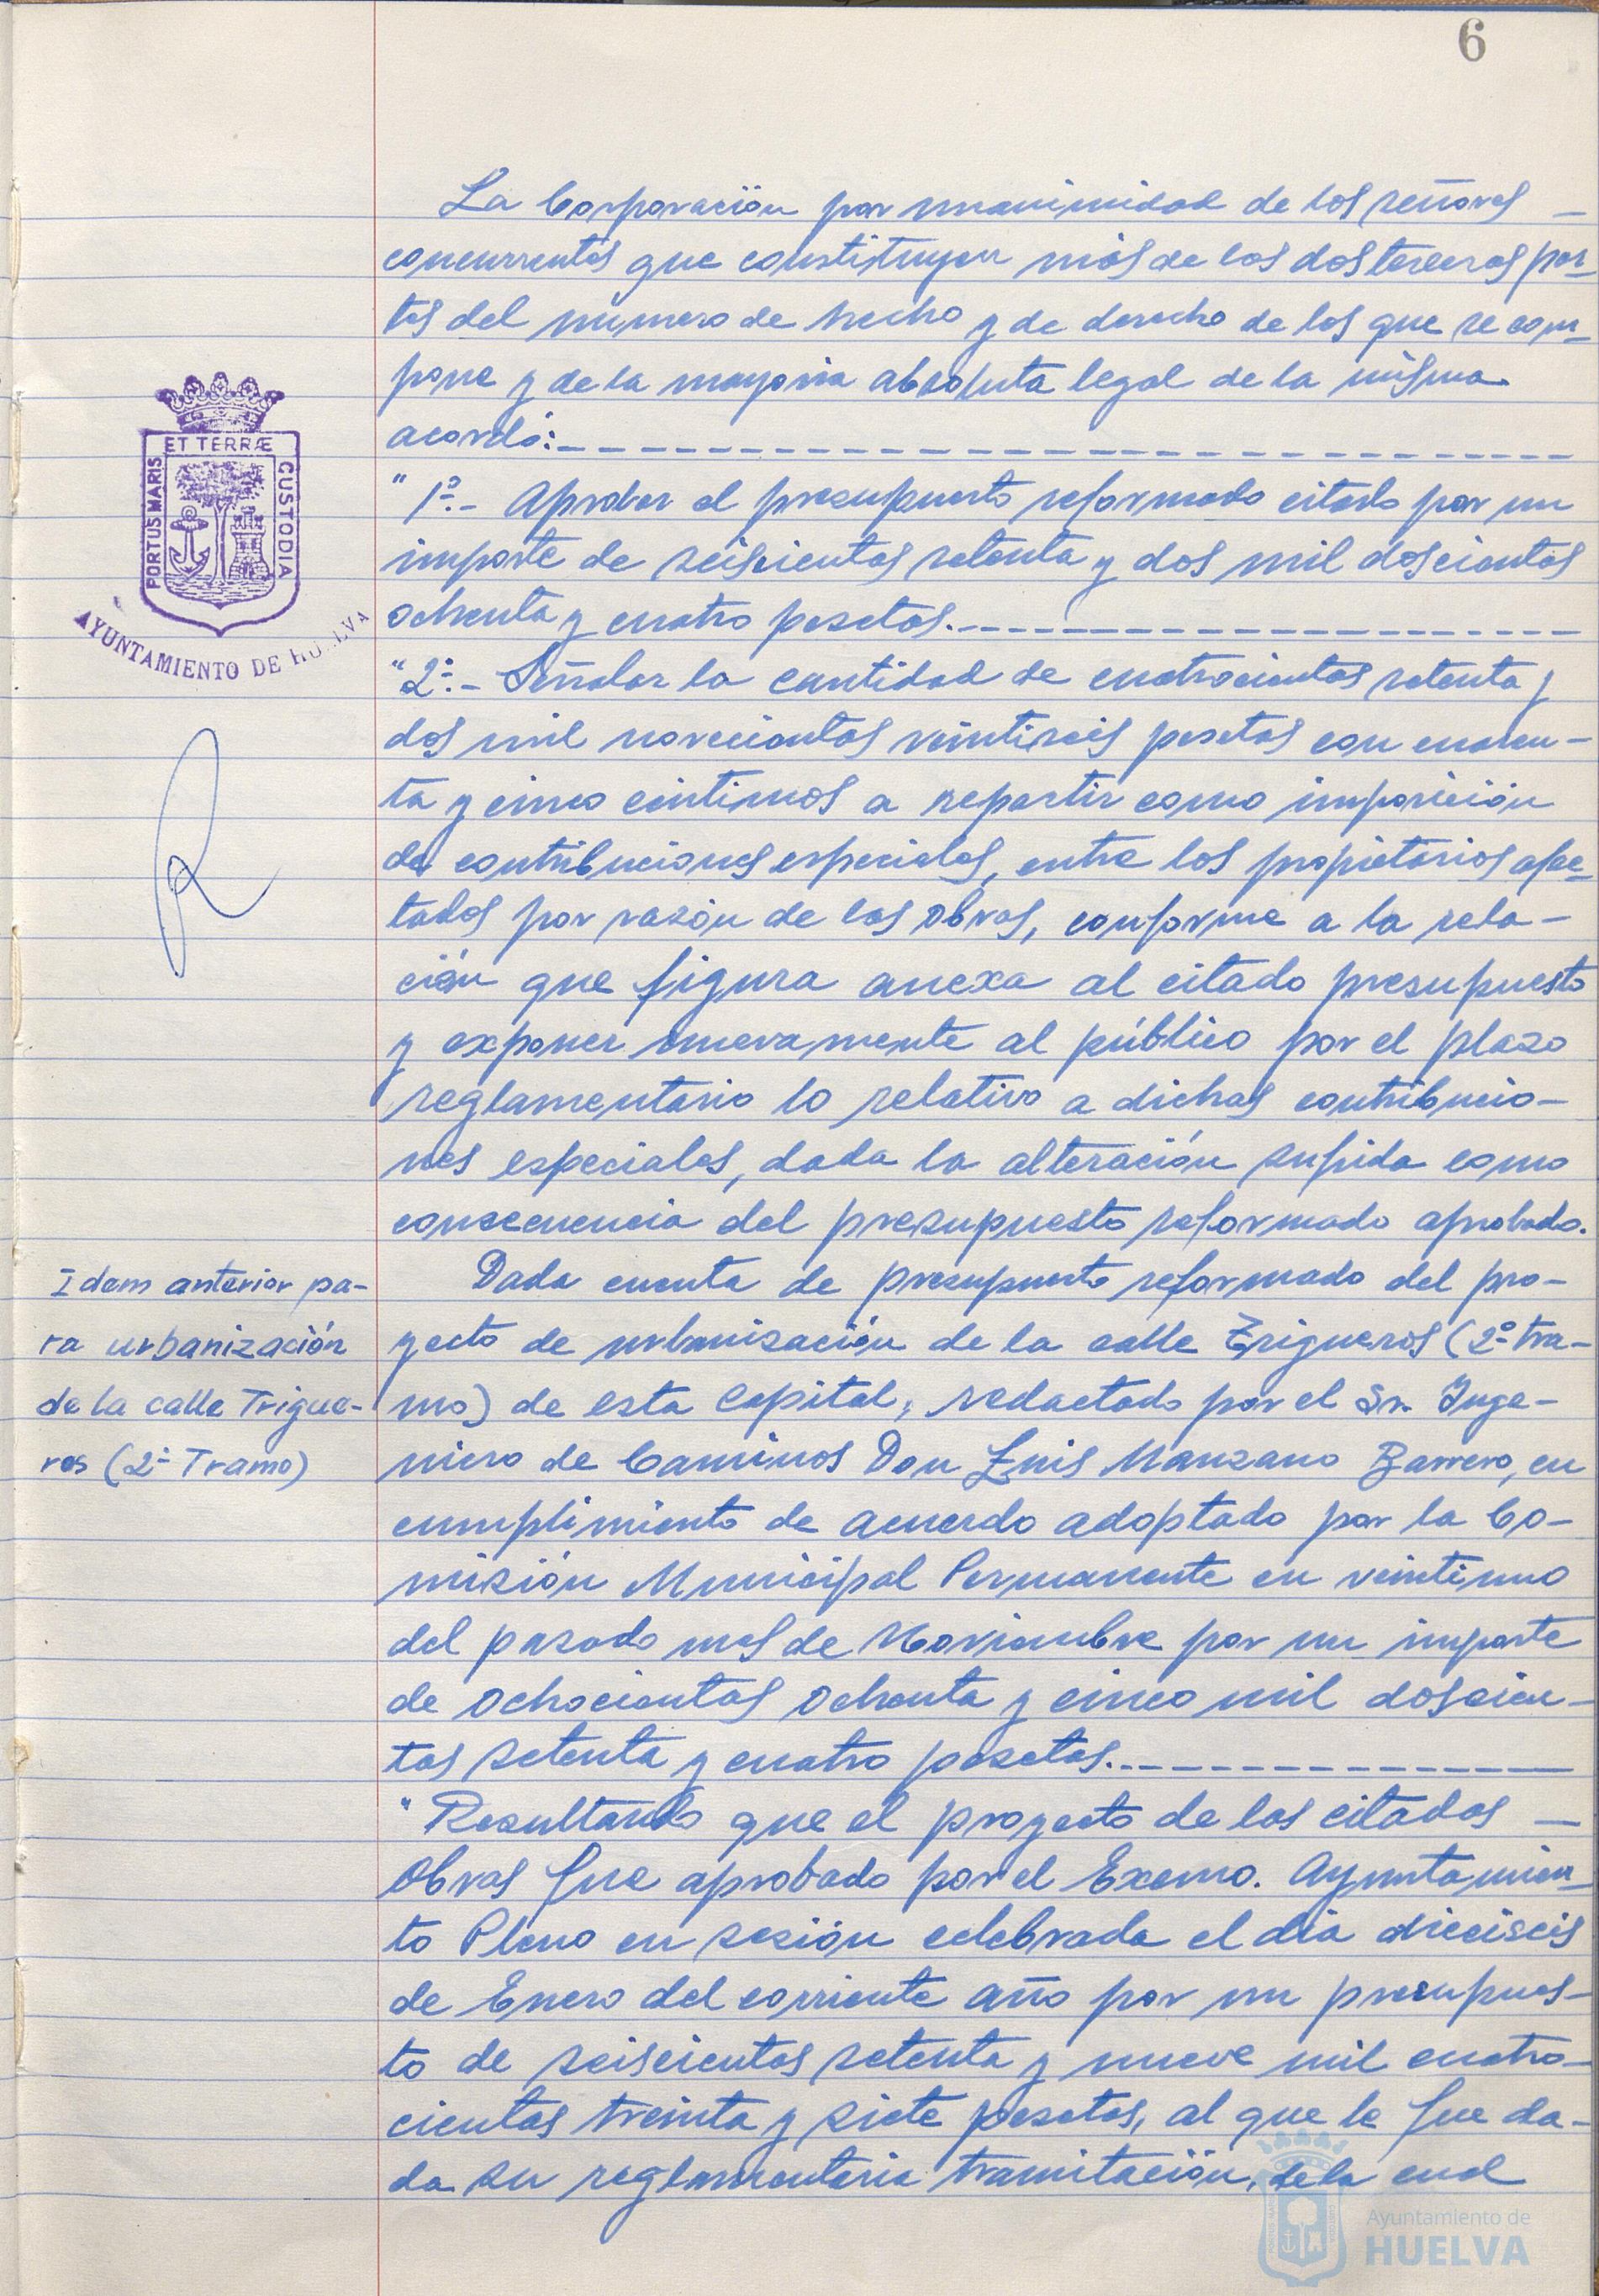 6
La Corporación por unanimidad de los señores —
concurrentes que constituyen más de las dos terceras par-
tes del número de hecho y de derecho de los que se com-
pone y de la mayoria absoluta legal de la misma
acordó:
"1º.- Aprobar el presupuesto reformado citado por un
importe de seiscientas setenta y dos mil doscientas
ochenta y cuatro pesetas.
"2º.- Señalar la cantidad de cuatrocientas setenta y
dos mil novecientas veintiseis pesetas con cuaren-
ta y cinco céntimos a repartir como imposición
de contribuciones especiales, entre los propietarios afec-
tados por razón de las obras, conforme a la rela-
ción que figura anexa al citado presupuesto
y exponer nuevamente al público por el plazo
reglamentario lo relativo a dichas contribucio-
nes especiales, dada la alteración sufrida como
consecuencia del presupuesto reformado aprobado.
Idem anterior pa-
ra urbanización
de la calle Trigue-
ros (2º Tramo)
Dada cuenta de presupuesto reformado del pro-
yecto de urbanización de la calle Trigueros (2º tra-
mo) de esta Capital, redactado por el Sr. Inge-
niero de Caminos Don Luis Manzano Barrero, en
cumplimiento de acuerdo adoptado por la Co-
misión Municipal Permanente en veintiuno
del pasado mes de Noviembre por un importe
de ochocientas ochenta y cinco mil doscien-
tas setenta y cuatro pesetas.
"Resultando que el proyecto de las citadas —
obras fue aprobado por el Excmo. Ayuntamien-
to Pleno en sesión celebrada el dia dieciseis
de Enero del corriente año por un presupues-
to de seiscientas setenta y nueve mil cuatro-
cientas treinta y siete pesetas, al que le fue da-
da su reglamentaria tramitación, de la cual
PORTUS MARIS
ET TERRÆ
CUSTODIA
AYUNTAMIENTO DE HUELVA
Ayuntamiento de
HUELVA